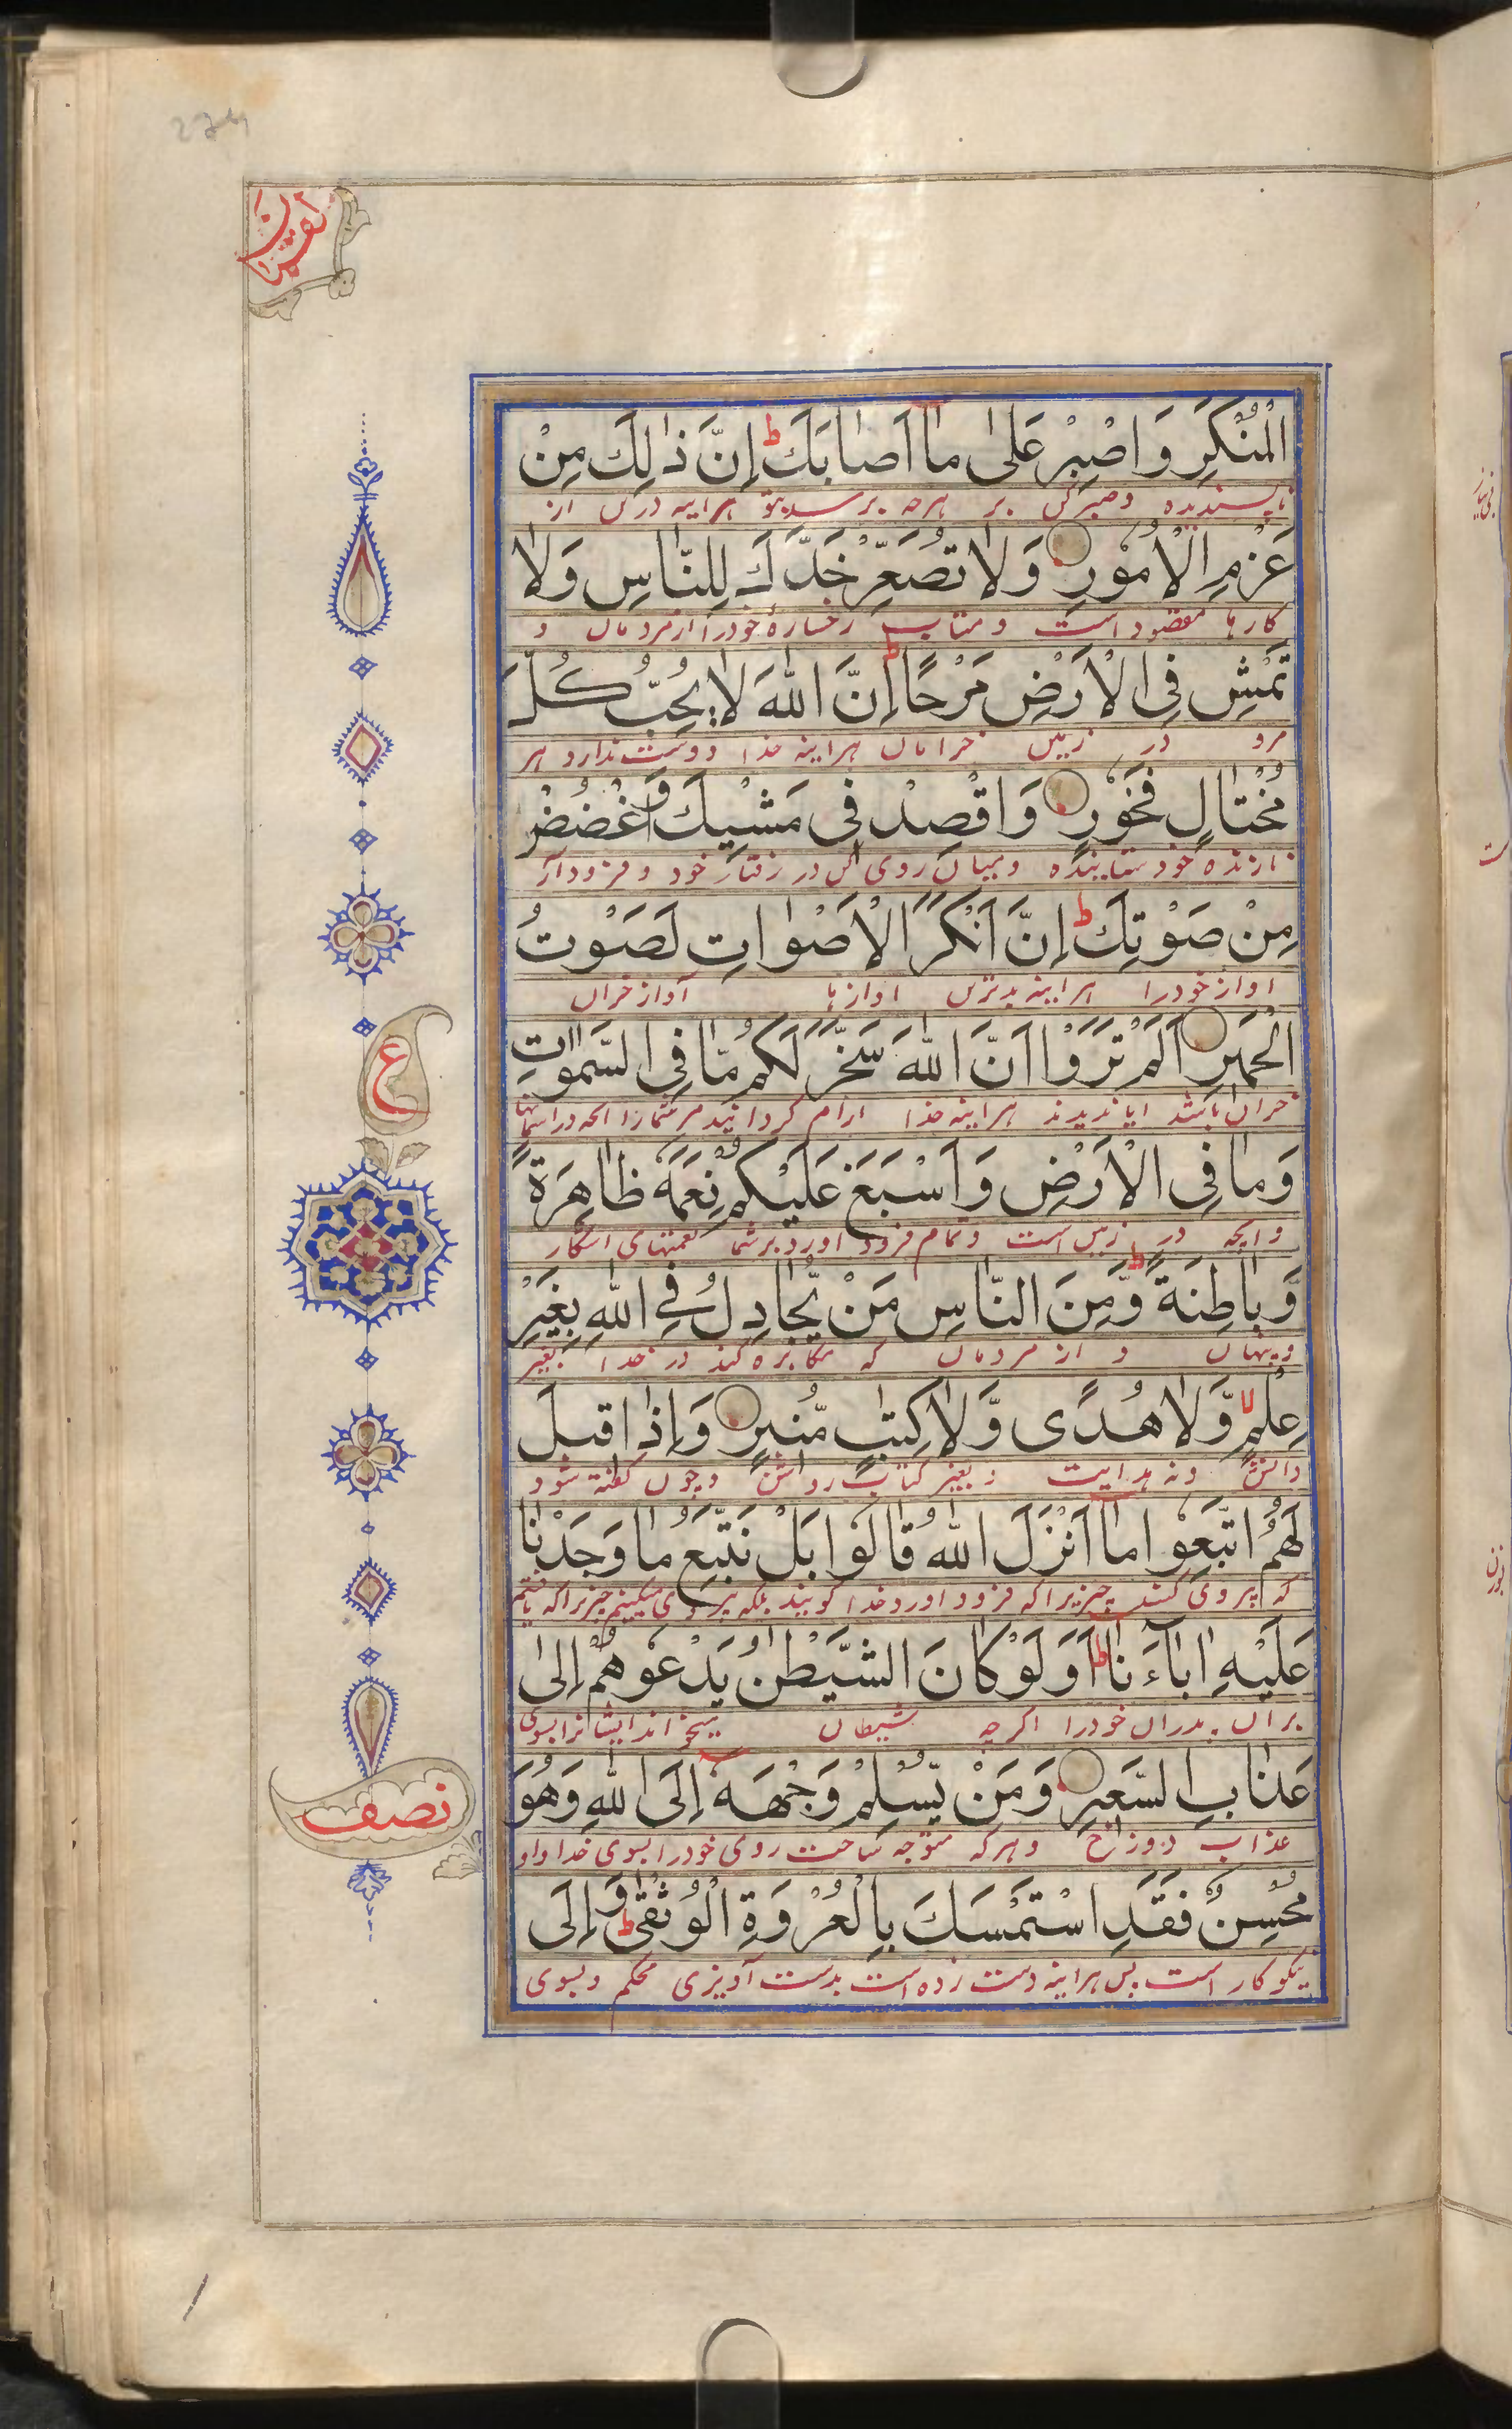 لقمان
الْمُنْكَرِ وَاصْبِرْ عَلٰى مَا اَصَابَكَ ط اِنَّ ذٰلِكَ مِنْ
ناپسندیده و صبر کن بر هرچه برسد بتو هراینه درین از
عَزْمِ الْاُمُوْرِ وَلَا تُصَعِّرْ خَدَّكَ لِلنَّاسِ وَلَا
کارها مقصود است و متاب رخسارهٔ خود را از مردمان و
تَمْشِ فِى الْاَرْضِ مَرَحًا ط اِنَّ اللّٰهَ لَا يُحِبُّ كُلَّ
مرو در زمین خرامان هراینه خدا دوست ندارد هر
مُخْتَالٍ فَخُوْرٍ وَاقْصِدْ فِى مَشْيِكَ وَاغْضُضْ
نازنده خود ستاینده و میان روی کن در رفتار خود و فرود آر
مِنْ صَوْتِكَ ط اِنَّ اَنْكَرَ الْاَصْوَاتِ لَصَوْتُ
اواز خود را هراینه بدترین اوازها آواز خران
الْحَمِيْرِ اَلَمْ تَرَوْا اَنَّ اللّٰهَ سَخَّرَ لَكُمْ مَّا فِى السَّمٰوٰتِ
خران باشد ایا ندیدند هراینه خدا رام گردانید مر شما را انچه در اسمانها
وَمَا فِى الْاَرْضِ وَاَسْبَغَ عَلَيْكُمْ نِعَمَهٗ ظَاهِرَةً
و انچه در زمین است و تمام فرود اورد بر شما نعمتهای اشکار
وَّبَاطِنَةً ط وَّمِنَ النَّاسِ مَنْ يُّجَادِلُ فِى اللّٰهِ بِغَيْرِ
و پنهان و از مردمان که مکابره کند در خدا بغیر
عِلْمٍ لا وَّلَا هُدًى وَّلَا كِتٰبٍ مُّنِيْرٍ وَاِذَا قِيْلَ
دانش و نه هدایت و بغیر کتاب روشن و چون گفته شود
لَهُمُ اتَّبِعُوْا مَا اَنْزَلَ اللّٰهُ قَالُوْا بَلْ نَتَّبِعُ مَا وَجَدْنَا
که پیروی کنید چیزیرا که فرود اورد خدا گویند بلکه پیروی میکنیم چیزیرا که یافتیم
عَلَيْهِ اٰبَاءَنَا ط اَوَلَوْ كَانَ الشَّيْطٰنُ يَدْعُوْهُمْ اِلٰى
بران پدران خود را اگرچه شیطان میخواند ایشانرا بسوی
عَذَابِ السَّعِيْرِ وَمَنْ يُّسْلِمْ وَجْهَهٗ اِلَى اللّٰهِ وَهُوَ
عذاب دوزخ و هرکه متوجه ساخت روی خود را بسوی خدا و او
مُحْسِنٌ فَقَدِ اسْتَمْسَكَ بِالْعُرْوَةِ الْوُثْقٰى ط وَاِلَى
نیکوکار است پس هراینه دست زده است بدست آویزی محکم و بسوی
ع
نصف